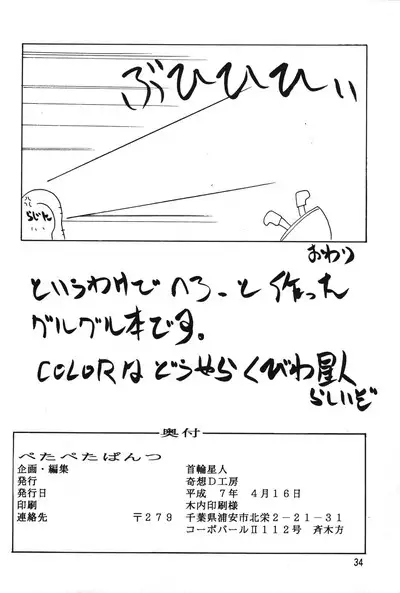 ぶひひひぃ
らじん
おわり
というわけで へろーと 作った
グルグル本です。
COLORは どうやら くびわ星人
らしいぞ
奥付
ぺたぺたぱんつ
企画・編集 首輪星人
発行 奇想D工房
発行日 平成 7年 4月16日
印刷 木内印刷様
連絡先 〒279 千葉県浦安市北栄2-21-31
コーポパールⅡ112号 斉木方
34